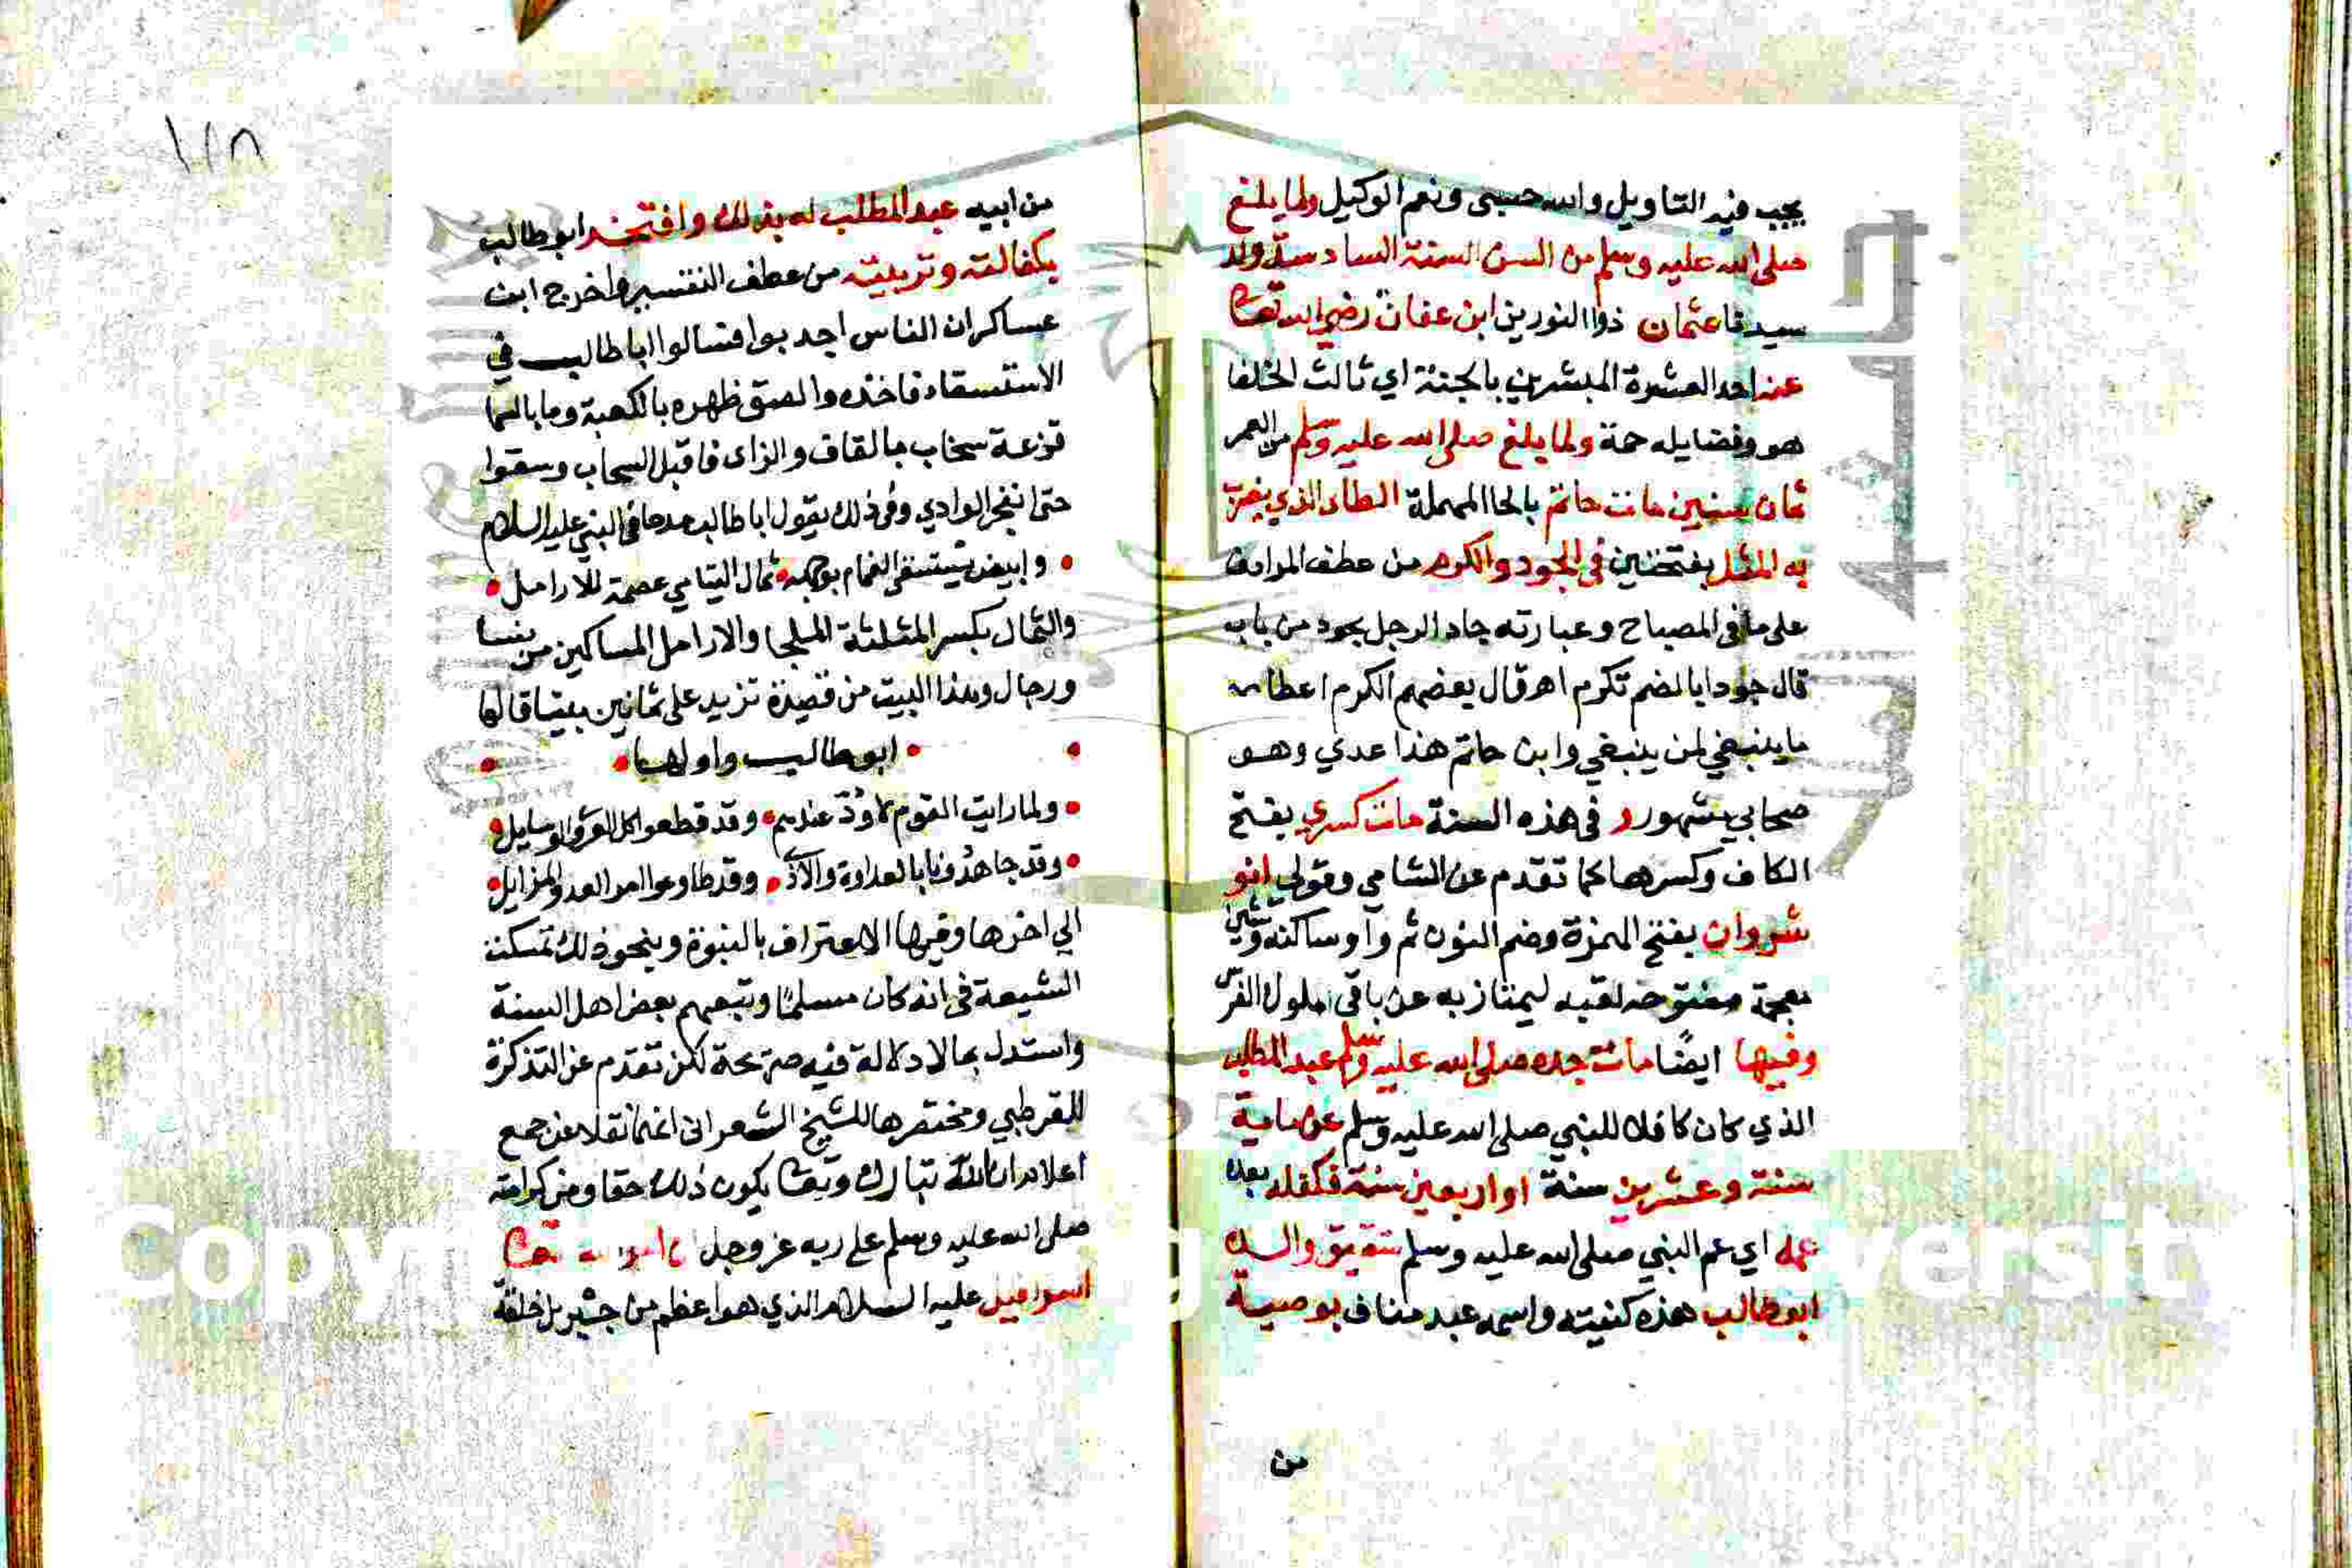 يجب فيه التاويل والله حسبى ونعم الوكيل ولما بلغ
صلى الله عليه وسلم من السن السنة السادسة ولد
سيدنا عثمان ذو النورين ابن عفان رضي الله تعا
عنه احد العشرة المبشرين بالجنة اي ثالث الخلفا
هو وفضايله جمة ولما بلغ صلى الله عليه وسلم من العمر
ثمان سنين مات حاتم بالحا المهملة الطاى الذي يضرب
به المثل بفتحتين في الجود والكرم من عطف المرادف
على ما في المصباح وعبارته جاد الرجل يجود من باب
قال جودا بالضم تكرم اهر قال بعضهم الكرم اعطا
ما ينبغي لمن ينبغي وابن حاتم هذا عدي وهو
صحابي مشهور و في هذه السنة مات كسرى بفتح
الكاف وكسرها كما تقدم عن الشامي وقولي انو
شروان بفتح الهمزة وضم النون ثم واو ساكنة وشين
معجمة مفتوحة لقبه ليمتاز به عن باقى املوك الفرس
وفيها ايضًا مات جده صلى الله عليه وسلم عبد المطلب
الذي كان كافلا للنبي صلى الله عليه وسلم عن ماية
سنة وعشرين سنة او اربعين سنة فكفله بعده
عمه اي عم النبي صلى الله عليه وسلم شقيق والده
ابو طالب هذه كنيته واسمه عبد مناف بوصية
من
١٧٨
من ابيه عبد المطلب له بذلك وافتخر ابو طالب
بكفالته وتربيته من عطف التفسير واخرج ابن
عساكر ان الناس اجدبوا فسالوا ابا طالب في
الاستسقاء فاخذه والصق ظهره بالكعبة وما بالسما
قزعة سحاب بالقاف والزاى فاقبل السحاب وسقوا
حتى انفجر الوادي وفي ذلك يقول ابا طالب مدحا في النبي عليه السلام
وابيض يستسقى الغمام بوجهه ثمال اليتامي عصمة للارامل
والثمال بكسر المثلثة الملجا والارامل المساكين من نسا
ورجال وهذا البيت من قصيدة تزيد على ثمانين بيتا قالها
ابو طالب واولها
ولما رايت القوم لا ود عندهم وقد قطعوا كل العرى والوسايل
وقد جاهدونا بالعداوة والاذى وقد طاوعوا امر العدو المزايل
الي اخرها وفيها الاعتراف بالنبوة وبنحو ذلك تمسكت
الشيعة في انه كان مسلما وتبعهم بعض اهل السنة
واستدل بما لا دلالة فيه صريحة لكن تقدم عن التذكرة
للقرطبي ومختصرها للشيخ الشعرانى نقلا عن جمع
ان الله تبارك وتعا يكون ذلك حقا ومن كرامته
صلى الله عليه وسلم على ربه عز وجل
اسرافيل عليه السلام الذي هو اعظم من جبريل خلقة